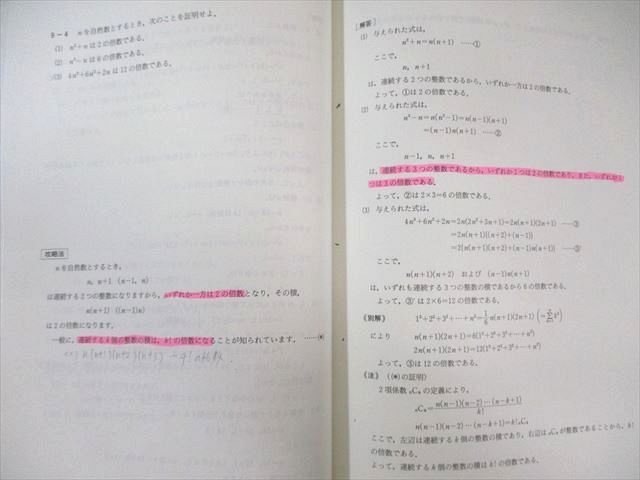 9－4 nを自然数とするとき，次のことを証明せよ．
(1) n²+n は 2 の倍数である．
(2) n³−n は 6 の倍数である．
(3) 4n³+6n²+2n は 12 の倍数である．
攻略法
nを自然数とするとき，
n, n+1 (n−1, n)
は連続する2つの整数になりますから，いずれか一方は2の倍数となり，その積，
n(n+1) ((n−1)n)
は2の倍数になります．
一般に，連続するk個の整数の積は，k!の倍数になることが知られています．……(*)
n(n+1)(n+2)(n+3) → 4!の倍数
［解答］
(1) 与えられた式は，
n²+n=n(n+1) ……①
ここで，
n, n+1
は，連続する2つの整数であるから，いずれか一方は2の倍数である．
よって，①は2の倍数である．
(2) 与えられた式は，
n³−n=n(n²−1)=n(n−1)(n+1)
=(n−1)n(n+1) ……②
ここで，
n−1, n, n+1
は，連続する3つの整数であるから，いずれか1つは2の倍数であり，また，いずれか1
つは3の倍数である．
よって，②は2×3=6の倍数である．
(3) 与えられた式は，
4n³+6n²+2n=2n(2n²+3n+1)=2n(n+1)(2n+1) ……③
=2n(n+1){(n+2)+(n−1)}
=2{n(n+1)(n+2)+(n−1)n(n+1)} ……③′
ここで，
n(n+1)(n+2) および (n−1)n(n+1)
は，いずれも連続する3つの整数の積であるから6の倍数である．
よって，③′は2×6=12の倍数である．
《別解》 1²+2²+3²+…+n²=1/6 n(n+1)(2n+1) (=∑k²)
により n(n+1)(2n+1)=6(1²+2²+3²+…+n²)
2n(n+1)(2n+1)=12(1²+2²+3²+…+n²)
よって，③は12の倍数である．
《注》 ((*)の証明)
2項係数 ₙCₖ の定義により，
ₙCₖ=n(n−1)(n−2)…(n−k+1)/k!
n(n−1)(n−2)…(n−k+1)=k!ₙCₖ
ここで，左辺は連続するk個の整数の積であり，右辺は ₙCₖ が整数であることから，k!
の倍数である．
よって，連続するk個の整数の積はk!の倍数である．